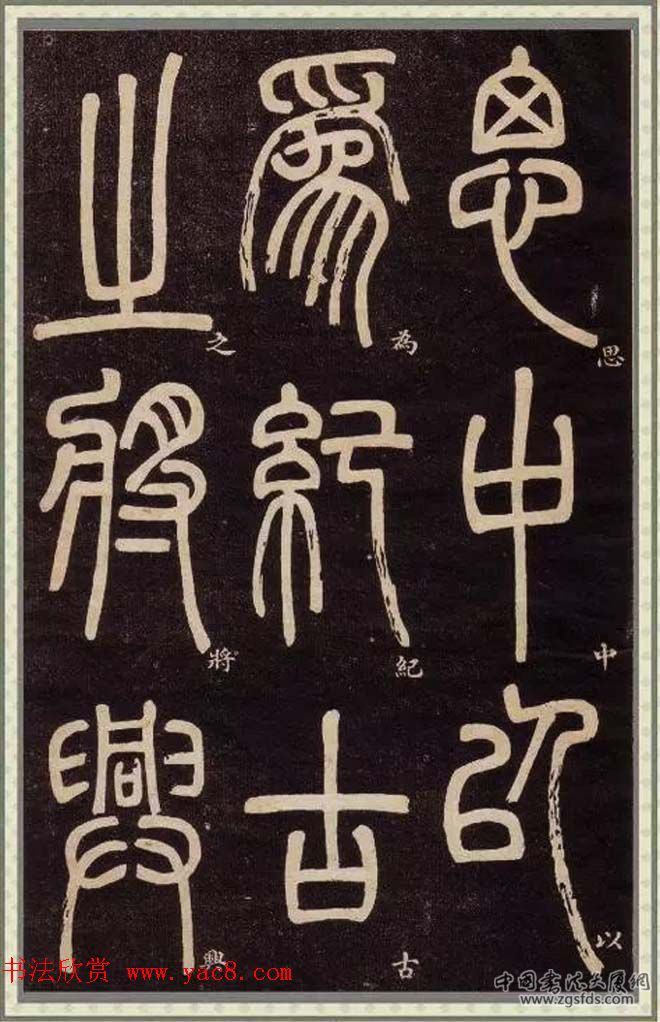 思中以
思中以
為紀古
為紀古
之將興
之將興
书法欣赏 www.yac8.com
中国书法大展网
www.zgsfds.com